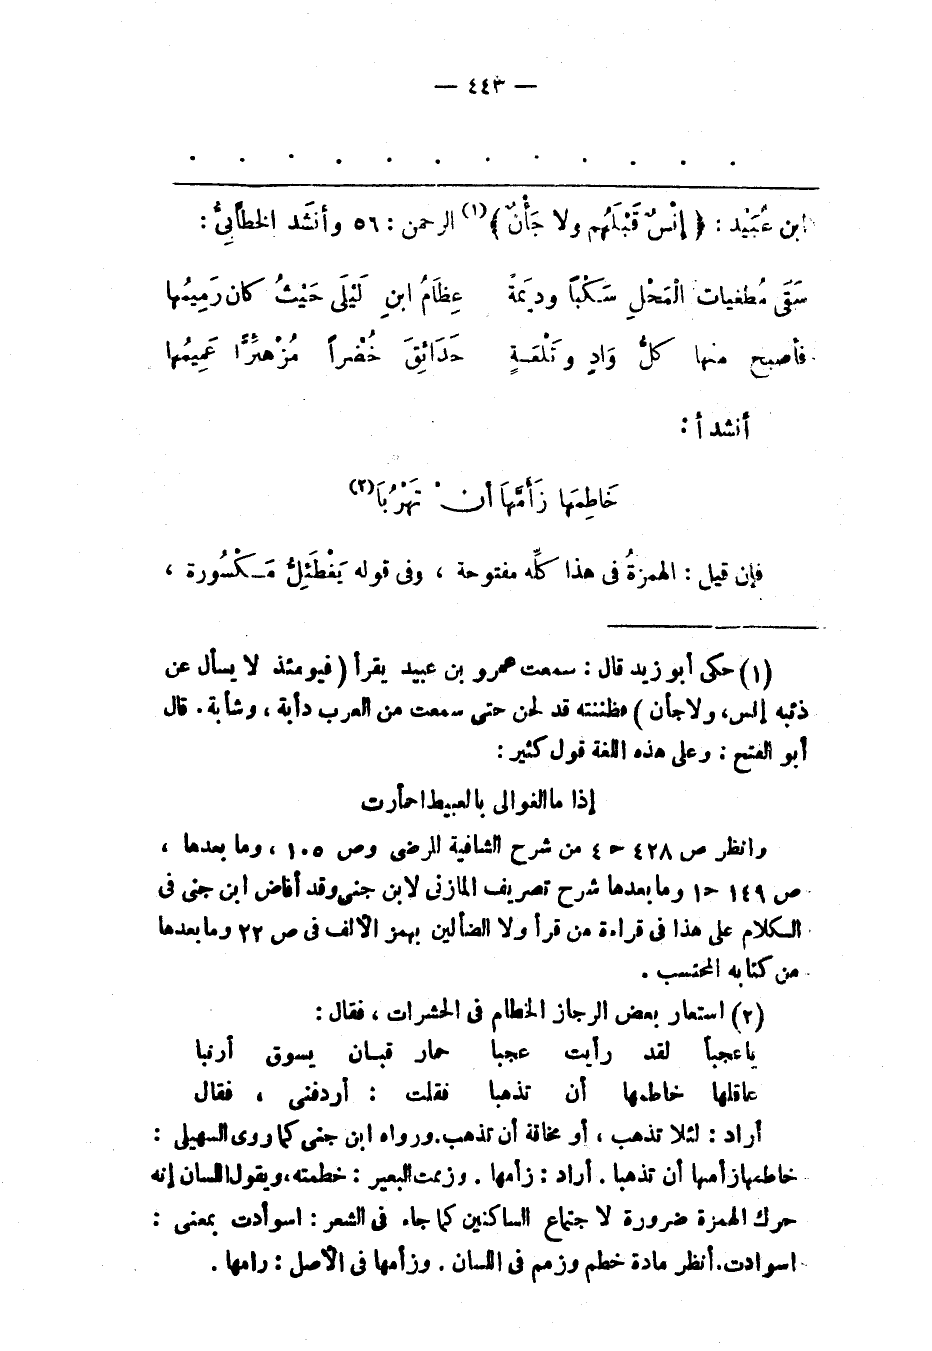 — ٤٤٣ —
. . . . . . . . . . . .
ابن عُبَيْد : ﴿ إنْسٌ قَبْلَهُم ولا جَأْنٌ ﴾(١) الرحمن : ٥٦ وأنشَد الخطَّابيُّ :
سَقَى مُطغيات الْمَحْلِ سَكْباً وديَمةً عِظَامُ ابنِ لَيْلَى حَيْثُ كان رَمِيمُها
فأصبح منها كلُّ وَادٍ وتَلْعَةٍ حَدَائِقَ خُضْراً مُزْهَئِرًّا عَمِيمُها
أنشد أ :
خَاطِمَها زَأَمَّهَا أن تَهْرُبَا(٢)
فإن قيل : الهمزةُ فى هذا كلِّه مفتوحة ، وفى قوله يَفْطَئِلُّ مَكْسُورة ،
(١) حكى أبو زيد قال : سمعت عمرو بن عبيد يقرأ ( فيومئذ لا يسأل عن
ذئبه إنس، ولا جأن ) فظننته قد لحن حتى سمعت من العرب دأبة ، وشأبة . قال
أبو الفتح : وعلى هذه اللغة قول كثير :
إذا ما الغوالى بالعبيط احمأرت
وانظر ص ٤٢٨ ح ٤ من شرح الشافية للرضى وص ١٠٥ ، وما بعدها ،
ص ١٤٩ ح١ وما بعدها شرح تصريف المازنى لابن جنى وقد أفاض ابن جنى فى
الكلام على هذا فى قراءة من قرأ ولا الضألين بهمز الألف فى ص ٢٢ وما بعدها
من كتابه المحتسب .
(٢) استعار بعض الرجاز الخطام فى الحشرات ، فقال :
ياعجباً لقد رأيت عجبا حمار قبان يسوق أرنبا
عاقلها خاطمها أن تذهبا فقلت : أردفنى ، فقال
أراد : لئلا تذهب ، أو مخافة أن تذهب . ورواه ابن جنى كما روى السهيلى :
خاطمها زأمها أن تذهبا . أراد : زأمها . وزممت البعير : خطمته، ويقول اللسان إنه
حرك الهمزة ضرورة لاجتماع الساكنين كما جاء فى الشعر : اسوأدت بمعنى :
اسوادت. أنظر مادة خطم وزمم فى اللسان . وزأمها فى الأصل : رامها .